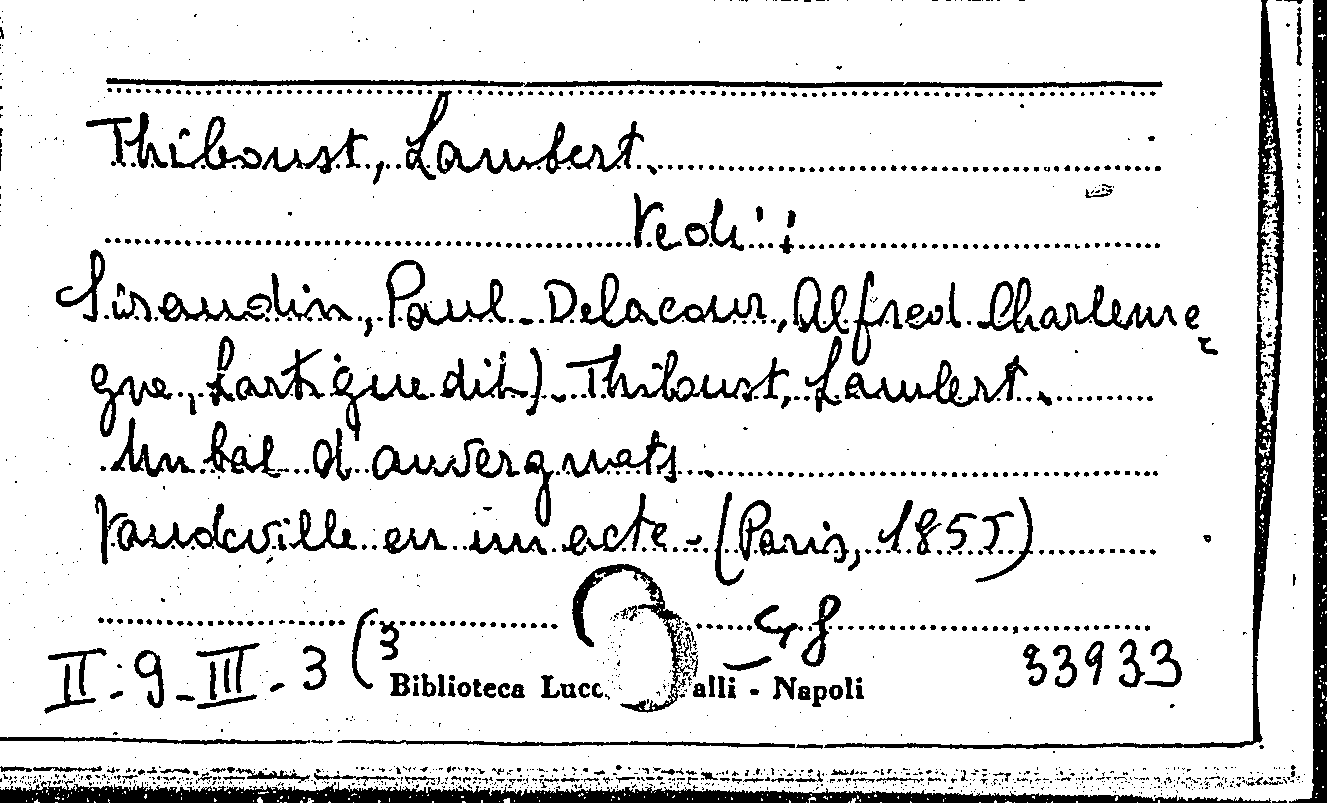 Thiboust, Lambert.
Vedi:
Siraudin, Paul - Delacour, Alfred Charlema
gne, Lartigue dit) - Thiboust, Lambert.
Un bal d'auvergnats.
Vaudeville en un acte - (Paris, 1855)
II - 9 - III - 3 (3
Biblioteca Lucc alli - Napoli
33933